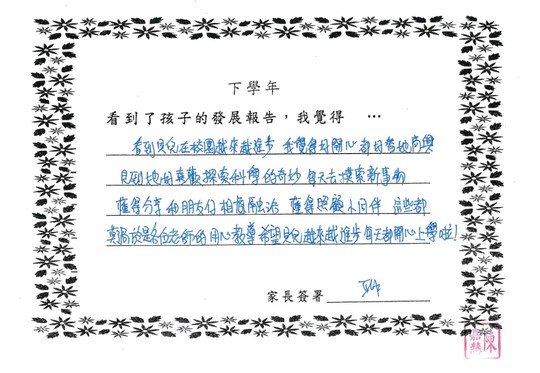 下學年
看到了孩子的發展報告，我覺得 …
看到貝兒在校園越來越進步 我覺得好開心 都好替她高興
見到她好喜歡探索科學的奇妙 每天去探索新事物
懂得分享 和朋友仔相處融洽 懂得照顧小同伴 這些都
真屬於是各位老師的用心教導 希望貝兒越來越進步 每天都開心上學啦!
家長簽署
陳